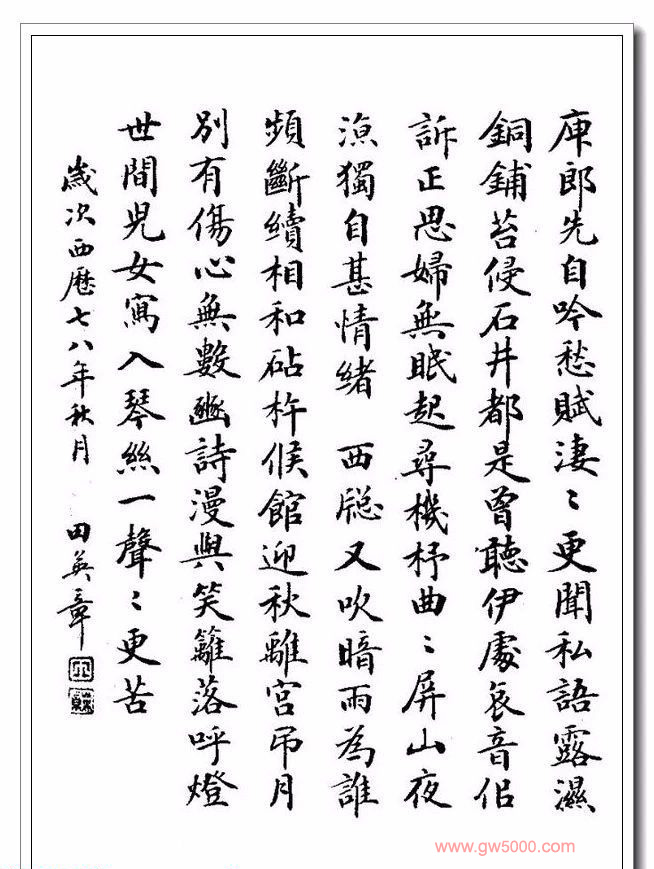 庾郎先自吟愁賦淒〻更聞私語露濕
銅鋪苔侵石井都是曾聽伊處哀音佀
訴正思婦無眠起尋機杼曲〻屏山夜
涼獨自甚情緒 西牕又吹暗雨為誰
頻斷續相和砧杵候館迎秋離宮吊月
別有傷心無數豳詩漫與笑籬落呼燈
世間兒女寫入琴絲一聲〻更苦
歲次西歷七八年秋月 田英章
www.gw5000.com